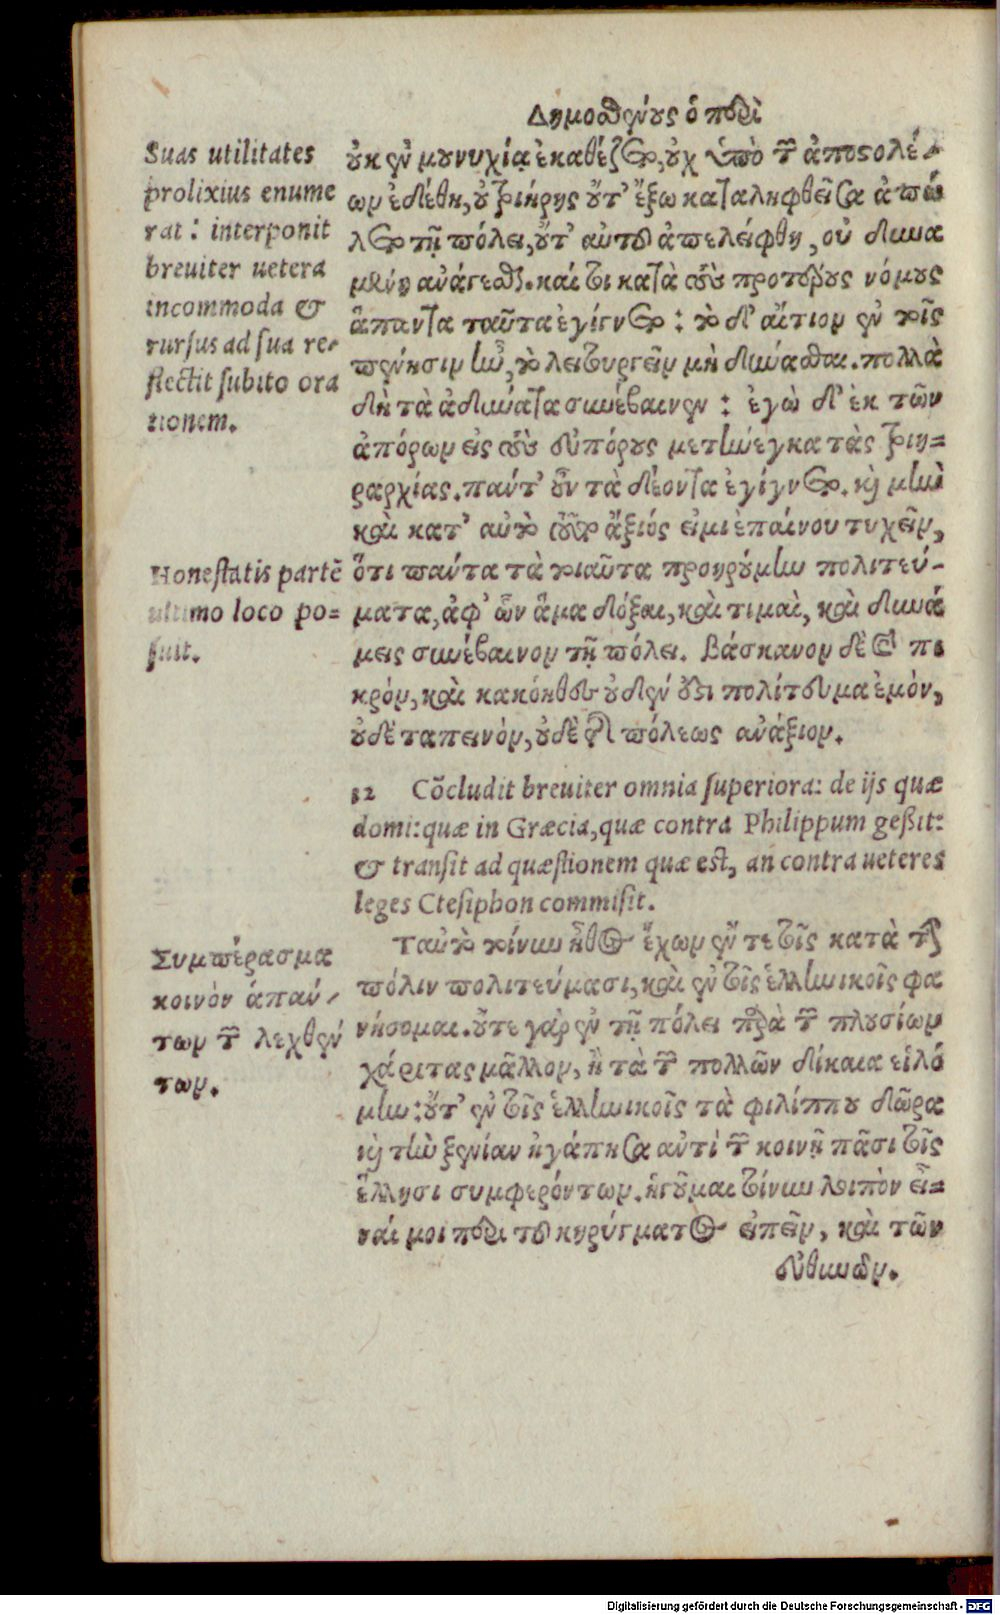 Δημοσθένους ὁ περὶ
Suas utilitates
prolixius enume
rat: interponit
breuiter uetera
incommoda &
rursus ad sua re-
flectit subito ora
tionem.
οὐκ ἐν μουνυχίᾳ ἐκαθέζετο, οὐχ ὑπὸ τῶν ἀποστολέ-
ων ἐδέθη, οὐ τριήρης οὔτ' ἔξω καταληφθεῖσα ἀπώ
λετο τῇ πόλει, οὔτ' αὐτοῦ ἀπελείφθη, οὐ δυνα
μένη ἀνάγεσθαι. καί τοι κατὰ τοὺς προτέρους νόμους
ἅπαντα ταῦτα ἐγίγνετο: τὸ δ' αἴτιον ἐν τοῖς
πένησιν ἦν, τὸ λειτουργεῖν μὴ δύνασθαι. πολλὰ
δὴ τὰ ἀδύνατα συνέβαινεν: ἐγὼ δ' ἐκ τῶν
ἀπόρων εἰς τοὺς εὐπόρους μετήνεγκα τὰς τριη=
ραρχίας. πάντ' οὖν τὰ δέοντα ἐγίγνετο. καὶ μὴν
καὶ κατ' αὐτὸ τοῦτο ἄξιός εἰμι ἐπαίνου τυχεῖν,
Honestatis partẽ
ultimo loco po=
suit.
ὅτι πάντα τὰ τοιαῦτα προῃρούμην πολιτεύ-
ματα, ἀφ' ὧν ἅμα δόξαι, καὶ τιμαὶ, καὶ δυνά
μεις συνέβαινον τῇ πόλει. βάσκανον δὲ καὶ πι
κρόν, καὶ κακόηθες οὐδέν ἐστι πολίτευμα ἐμόν,
οὐδὲ ταπεινόν, οὐδὲ τῆς πόλεως ἀνάξιον.
12 Cõcludit breuiter omnia superiora: de ijs quæ
domi: quæ in Græcia, quæ contra Philippum gessit:
& transit ad quæstionem quæ est, an contra ueteres
leges Ctesiphon commisit.
Συμπέρασμα
κοινὸν ἁπάν-
των τῶν λεχθέν
των.
Ταὐτὸ τοίνυν ἦθος ἔχων ἔν τε τοῖς κατὰ τὴν
πόλιν πολιτεύμασι, καὶ ἐν τοῖς ἑλληνικοῖς φα
νήσομαι. οὔτε γὰρ ἐν τῇ πόλει παρὰ τῶν πλουσίων
χάριτας μᾶλλον, ἢ τὰ τῶν πολλῶν δίκαια εἱλό
μην: οὔτ' ἐν τοῖς ἑλληνικοῖς τὰ φιλίππου δῶρα
καὶ τὴν ξενίαν ἠγάπησα ἀντὶ τῶν κοινῇ πᾶσι τοῖς
ἕλλησι συμφερόντων. ἡγοῦμαι τοίνυν λοιπὸν εἶ=
ναί μοι περὶ τοῦ κηρύγματος εἰπεῖν, καὶ τῶν
εὐθυνῶν.
Digitalisierung gefördert durch die Deutsche Forschungsgemeinschaft - DFG